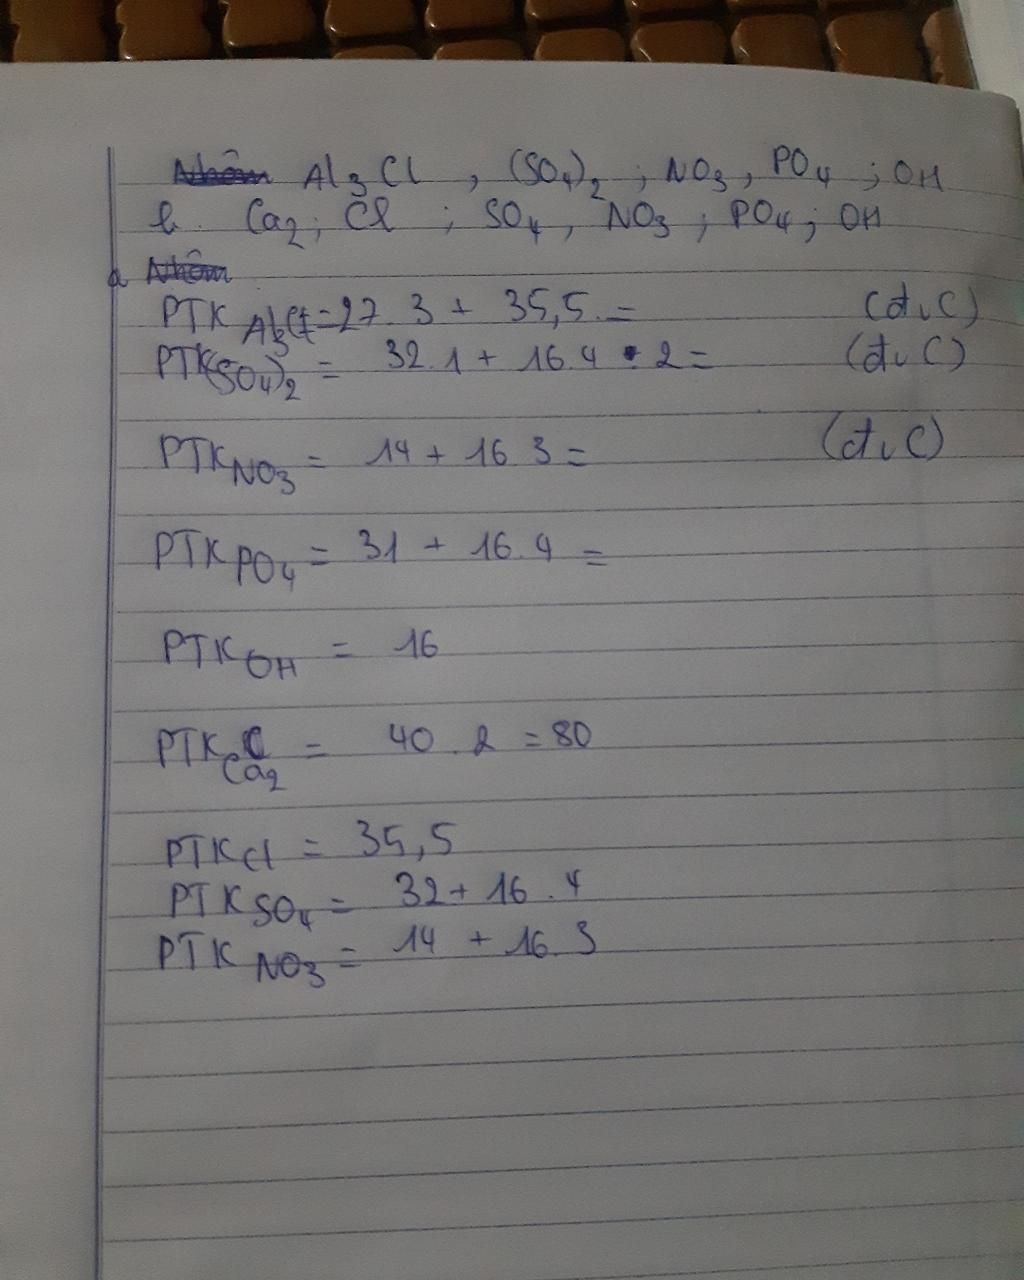 Nhôm Al3Cl , (SO4)2 ; NO3 , PO4 ; OH
b. Ca2 ; Cl ; SO4 , NO3 ; PO4 ; OH
a Nhôm
PTK Al3Cl = 27 . 3 + 35,5 . = (đvC)
PTK(SO4)2 = 32.1 + 16.4 . 2 = (đvC)
PTK NO3 = 14 + 16 3 = (đvC)
PTK PO4 = 31 + 16.4 =
PTK OH = 16
PTK Ca2 = 40 . 2 = 80
PTK Cl = 35,5
PTK SO4 = 32 + 16 . 4
PTK NO3 = 14 + 16. 3